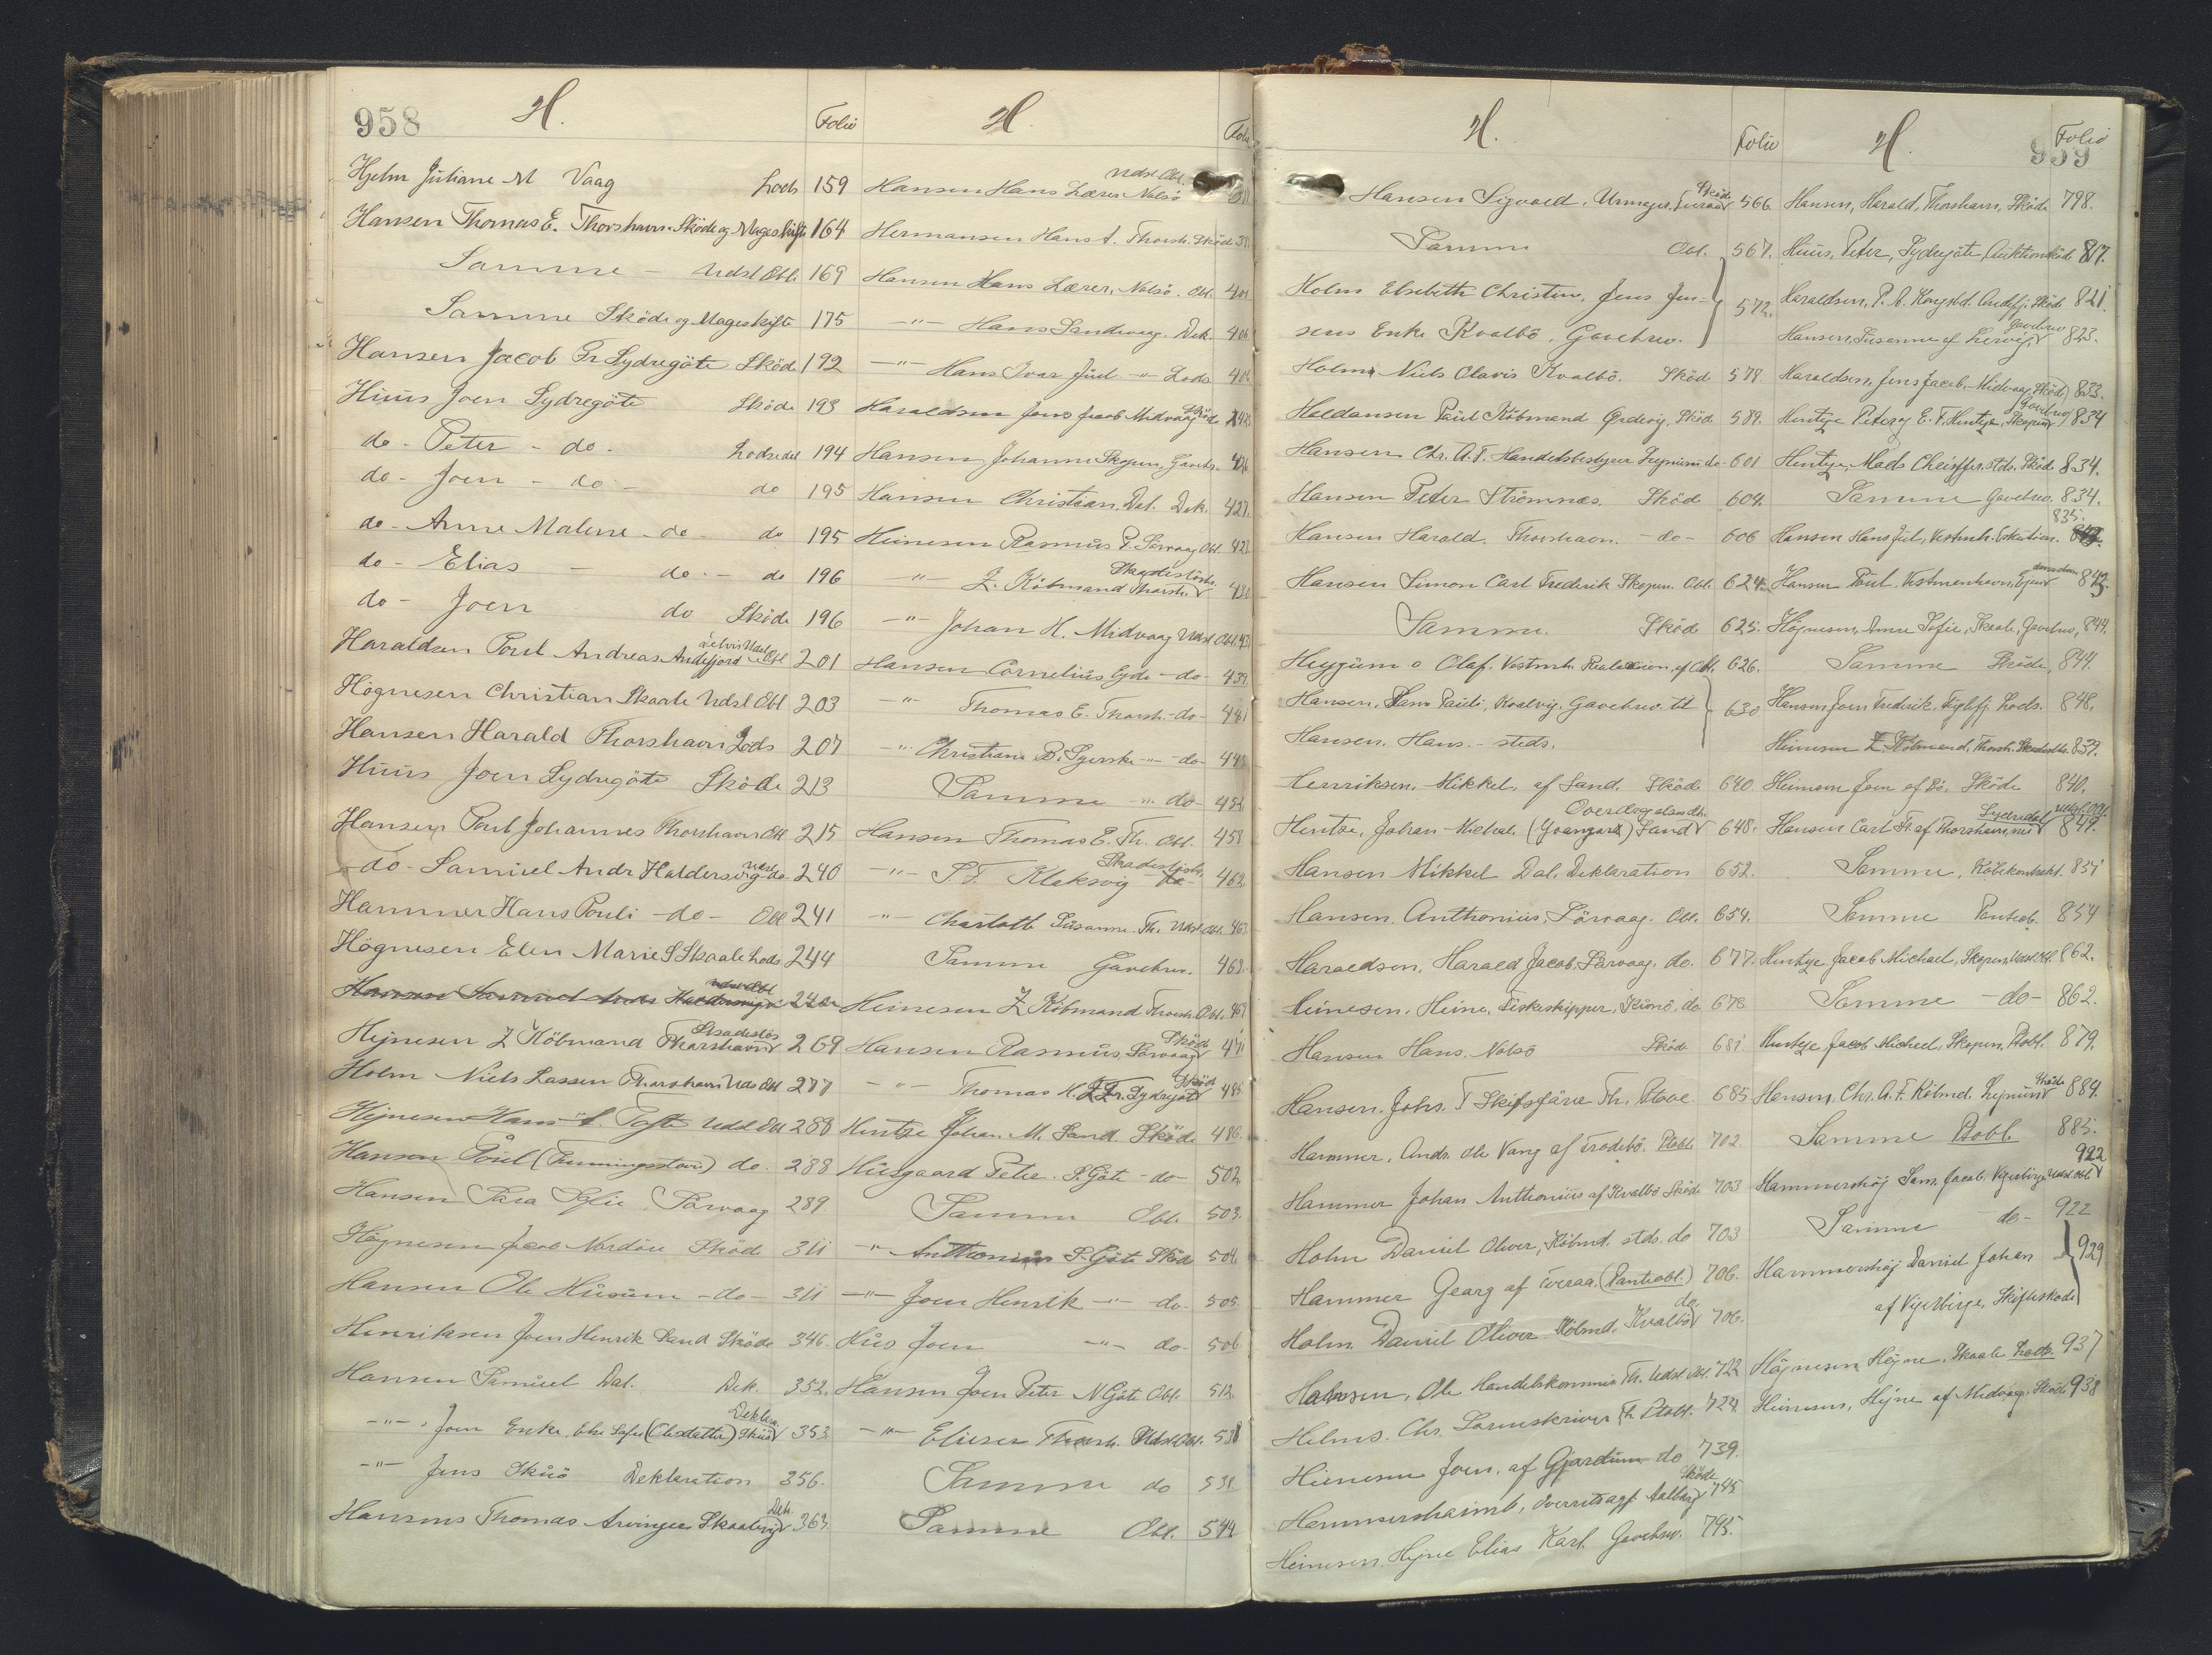 958
H.
Folio
Hjelm Juliane M Vaag Lods 159
Hansen Thomas E. Thorshavn Sköde og Mageskifte 164
Samme - Udsl Obl. 169
Samme Sköde og Mageskifte 175
Hansen Jacob Fr Sydregöte Sköde 192
Huus Joen Sydregöte Sköde 193
do - Peter - do. Lodseddel 194
do - Joen - do - do 195
do - Anne Malene - do - do 195
do - Elias - do - do 196
do - Joen do Sköde 196
Haraldsen Poul Andreas Andefjord Delvis Udsl Obl 201
Högnesen Christian Skaale Udsl Obl 203
Hansen Harald Thorshavn Lods 207
Huus Joen Sydregöte Sköde 213
Hansen Poul Johannes Thorshavn Obl 215
do - Samuel Andr Haldersvig Udsl do - 240
Hammer Hans Pouli - do - Obl 241
Högnesen Elen Marie S Skaale Lods 244
Hansen Samuel Andr Haldersvig Udsl Obl
Hejnesen Z Köbmand Thorshavn Skadeslös 269
Holm Niels Lassen Thorshavn Uds Obl 277
Hejnesen Hans A. Tofte Udsl Obl 288
Hansen Poul do. 288
Hansen Sara Sofie Sörvaag 289
Högnesen Jacob Nordöre Sköde 311
Hansen Ole Husum - do - 311
Henriksen Joen Henrik Sand Sköde 346.
Hansen Samuel Dal. Dek. 352.
-"- Joen Enke, Else Sofie Skuö Deklara. 353
-"- Jens Skuö Deklaration 356.
Hansens Thomas Arvinger Skaalevig Dek. 363.
H.
Folio
Hansen Hans Lærer Nolsö Udsl Obl.
Hermansen Hans A. Thorsh. Sköde
Hansen Hans Lærer, Nolsö. Obl.
-"- Hans Sandevaag. Dek.
-"- Hans Ivar Juul -"- Lods
Haraldsen Jens Jacob Midvaag Sköde
Hansen Johanne Skopun, Gaveb.
Hansen Christian. Dal. Dek. 427.
Heinesen Rasmus P. Sörvaag Obl
-"- Z. Köbmand Thorsh. Skadeslösb.
-"- Johan H. Midvaag Udsl Obl.
Hansen Cornelius Ejde - do - 439
-"- Thomas E. Thorsh. - do - 441
-"- Christiane B. Syerske -"- do
Samme -"- do -
Hansen Thomas E. Th. Obl. 458
-"- S. F. Klaksvig Skadeslösb. 462
-"- Charlotte Susanne Th. Udsl. Obl. 463
Samme Gavebrev. 463.
Heinesen Z Köbmand Thorsh. Obl.
Hansen Rasmus, Sörvaag Sköde 471
-"- Thomas H. Sydregöte Sköde 485
Hentze Johan. M. Sand Sköde 486.
Husgaard Peter. S. Göte - do - 502
Samme Obl. 503.
-"- Anthonius S. Göte Sköd 504
-"- Joen Henrik -"- do - 505
Hus Joen -"- do - 506
Hansen Joen Peter N Göte Obl. 512
-"- Elieser Thorsh. Udsl. Obl. 531
Samme do 531.
Samme Obl. 544
H.
Folio
Hansen Sigvald. Urmager. Sköde 566.
Samme Obl. 567.
Holm Elsebeth Christine, Jens Jen-
sens Enke Kvalbö. Gavebrev. 572.
Holm Niels Clavis Kvalbö. Sköd 578.
Haldansen Paul Köbmand Öredevig, Sköd 589.
Hansen Chr. A. F. Handelsbestyrer Lejnum do - 601
Hansen Peter Strömnæs. Sköd 604.
Hansen Harald. Thorshavn. - do - 606
Hansen Simon Carl Frederik Skopun. Obl. 624.
Samme. Sköd 625.
Heygum o Olaf. Vestmh. Obl. 626.
Hansen, Hans Pauli, Kvalvig. Gavebrev. til
Hansen. Hans. - steds. 630
Henriksen. Mikkel. af Sand. Sköde 640.
Hentze, Johan Michal. Sand Overdragelsesdok. 648.
Hansen Mikkel Dal. Deklaration 652.
Hansen. Anthonius, Sörvaag. Obl. 654.
Haraldsen. Harald Jacob, Sörvaag. do. 677.
Heinesen. Heine, Fiskeskipper, Skuö, do 678
Hansen Hans. Nolsö Sköde 681
Hansen. Johs. F Skipsfører Th. Ptobl. 685
Hammer, Andr. Ole Vang af Frodebö. Ptobl. 702
Hammer Johan Anthonius af Kvalbö Sköde 703
Holm Daniel Oliver, Köbmd. stds. do 703
Hammer Georg af Överaa. (Pantobl.) 706.
Holm Daniel Oliver Köbmd. Kvalbö do. 706.
Hansen, Ole Handelskommis Th. Udsl Obl. 722
Helms. Chr. Sorenskriver Th Ptobl. 724
Heinesen Joen. af Gjardum do 739.
Hammershaimb, Overretssagf. Aalborg Sköde 745
Heinesen. Hejne Elias Karl. Gavebrev. 795.
H.
Folio
959
Hansen, Harald, Thorshavn, Sköde 798.
Huus, Peter, Sydregöte, Auktionsköde 817.
Haraldsen, P. A. Andefj. Sköde 821.
Hansen, Susanne af Lervig, Gavebrev 823.
Haraldsen, Jens Jacob, Midvaag, Sköd, 833.
Hentze Peter og E. F. Hentze, Skopun Gavebrev 834
Hentze, Mads Christoffer, stds. Sköde 834.
Samme Gavebrev. 834.
Hansen Hans Juul, Vestmh. Eskution. 835.
Hansen Poul. Vestmenhavn, 842.
Högnesen, Anna Sofie, Skaale, Gavebrev, 844.
Samme Sköde, 844.
Hansen Joen Fredrik, Fuglefj. Lods. 848.
Heinesen Z. Köbmand, Thorsh. Skadeslb. 839.
Heinesen Joen af Bö. Sköde 840.
Hansen Carl Fr. af Thorshavn, nu Sydredal Udsl. Obl. 849.
Samme, Köbekontrakt. 851
Samme Panteob. 854
Hentze Jacob Michael, Skopun, Udsl. Obl. 862.
Samme - do - 862.
Hentze, Jacob Micheel, Skopun, Ptobl. 879.
Hansen, Chr. A. F. Köbmd. Lejnum Sköde 884.
Samme Ptobl. 885.
Hammershöj Sam. Jacob. Vejerbirge Udsl. Obl. 922
Samme do - 922
Hammershöj Daniel Johan
af Vejerbirge, Skifteskode 929
Högnesen Högne, Skaale Lods. 937
Heinesen, Hejne af Midvaag, Sköde 938